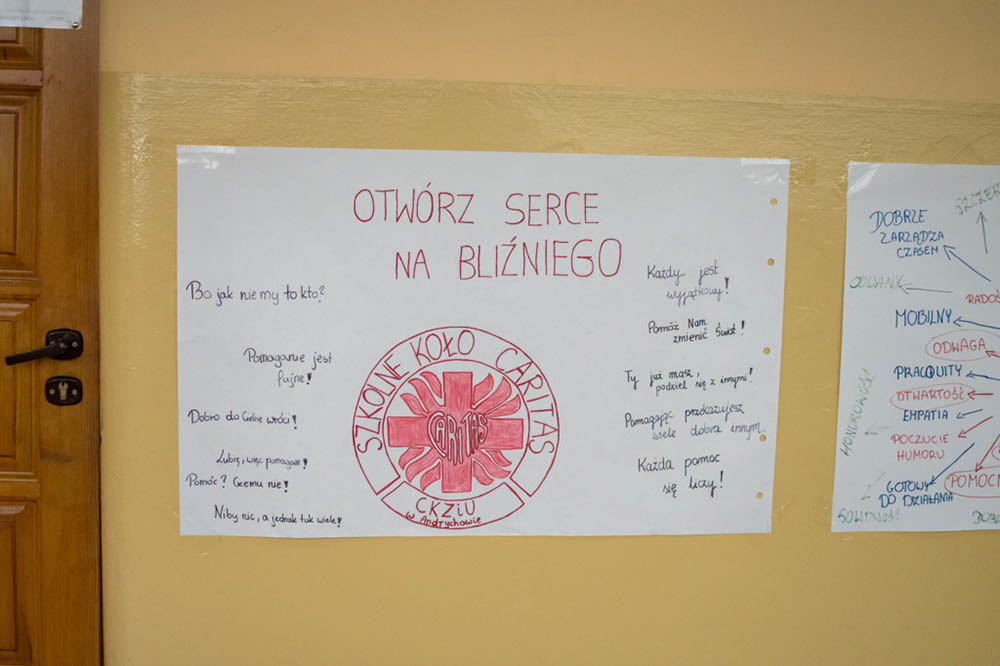 OTWÓRZ SERCE
NA BLIŹNIEGO
Bo jak nie my to kto?
Pomaganie jest
fajne!
Dobro do Ciebie wróci!
Lubię, więc pomagam!
Pomóc? Czemu nie!
Niby nic, a jednak tak wiele!
SZKOLNE KOŁO CARITAS
CARITAS
CKZiU
w Andrychowie
Każdy jest
wyjątkowy!
Pomóż Nam
zmienić Świat!
Ty już masz,
podziel się z innymi!
Pomagając przekazujesz
wiele dobra innym.
Każda pomoc
się liczy!
DOBRZE
ZARZĄDZA
CZASEM
ODDANY
RADOŚ
MOBILNY
ODWAGA
PRACOWITY
OTWARTOŚĆ
EMPATIA
POCZUCIE
HUMORU
HONOROWOŚĆ
POMOCN
GOTOWY
DO DZIAŁANIA
SOLIDNOŚĆ